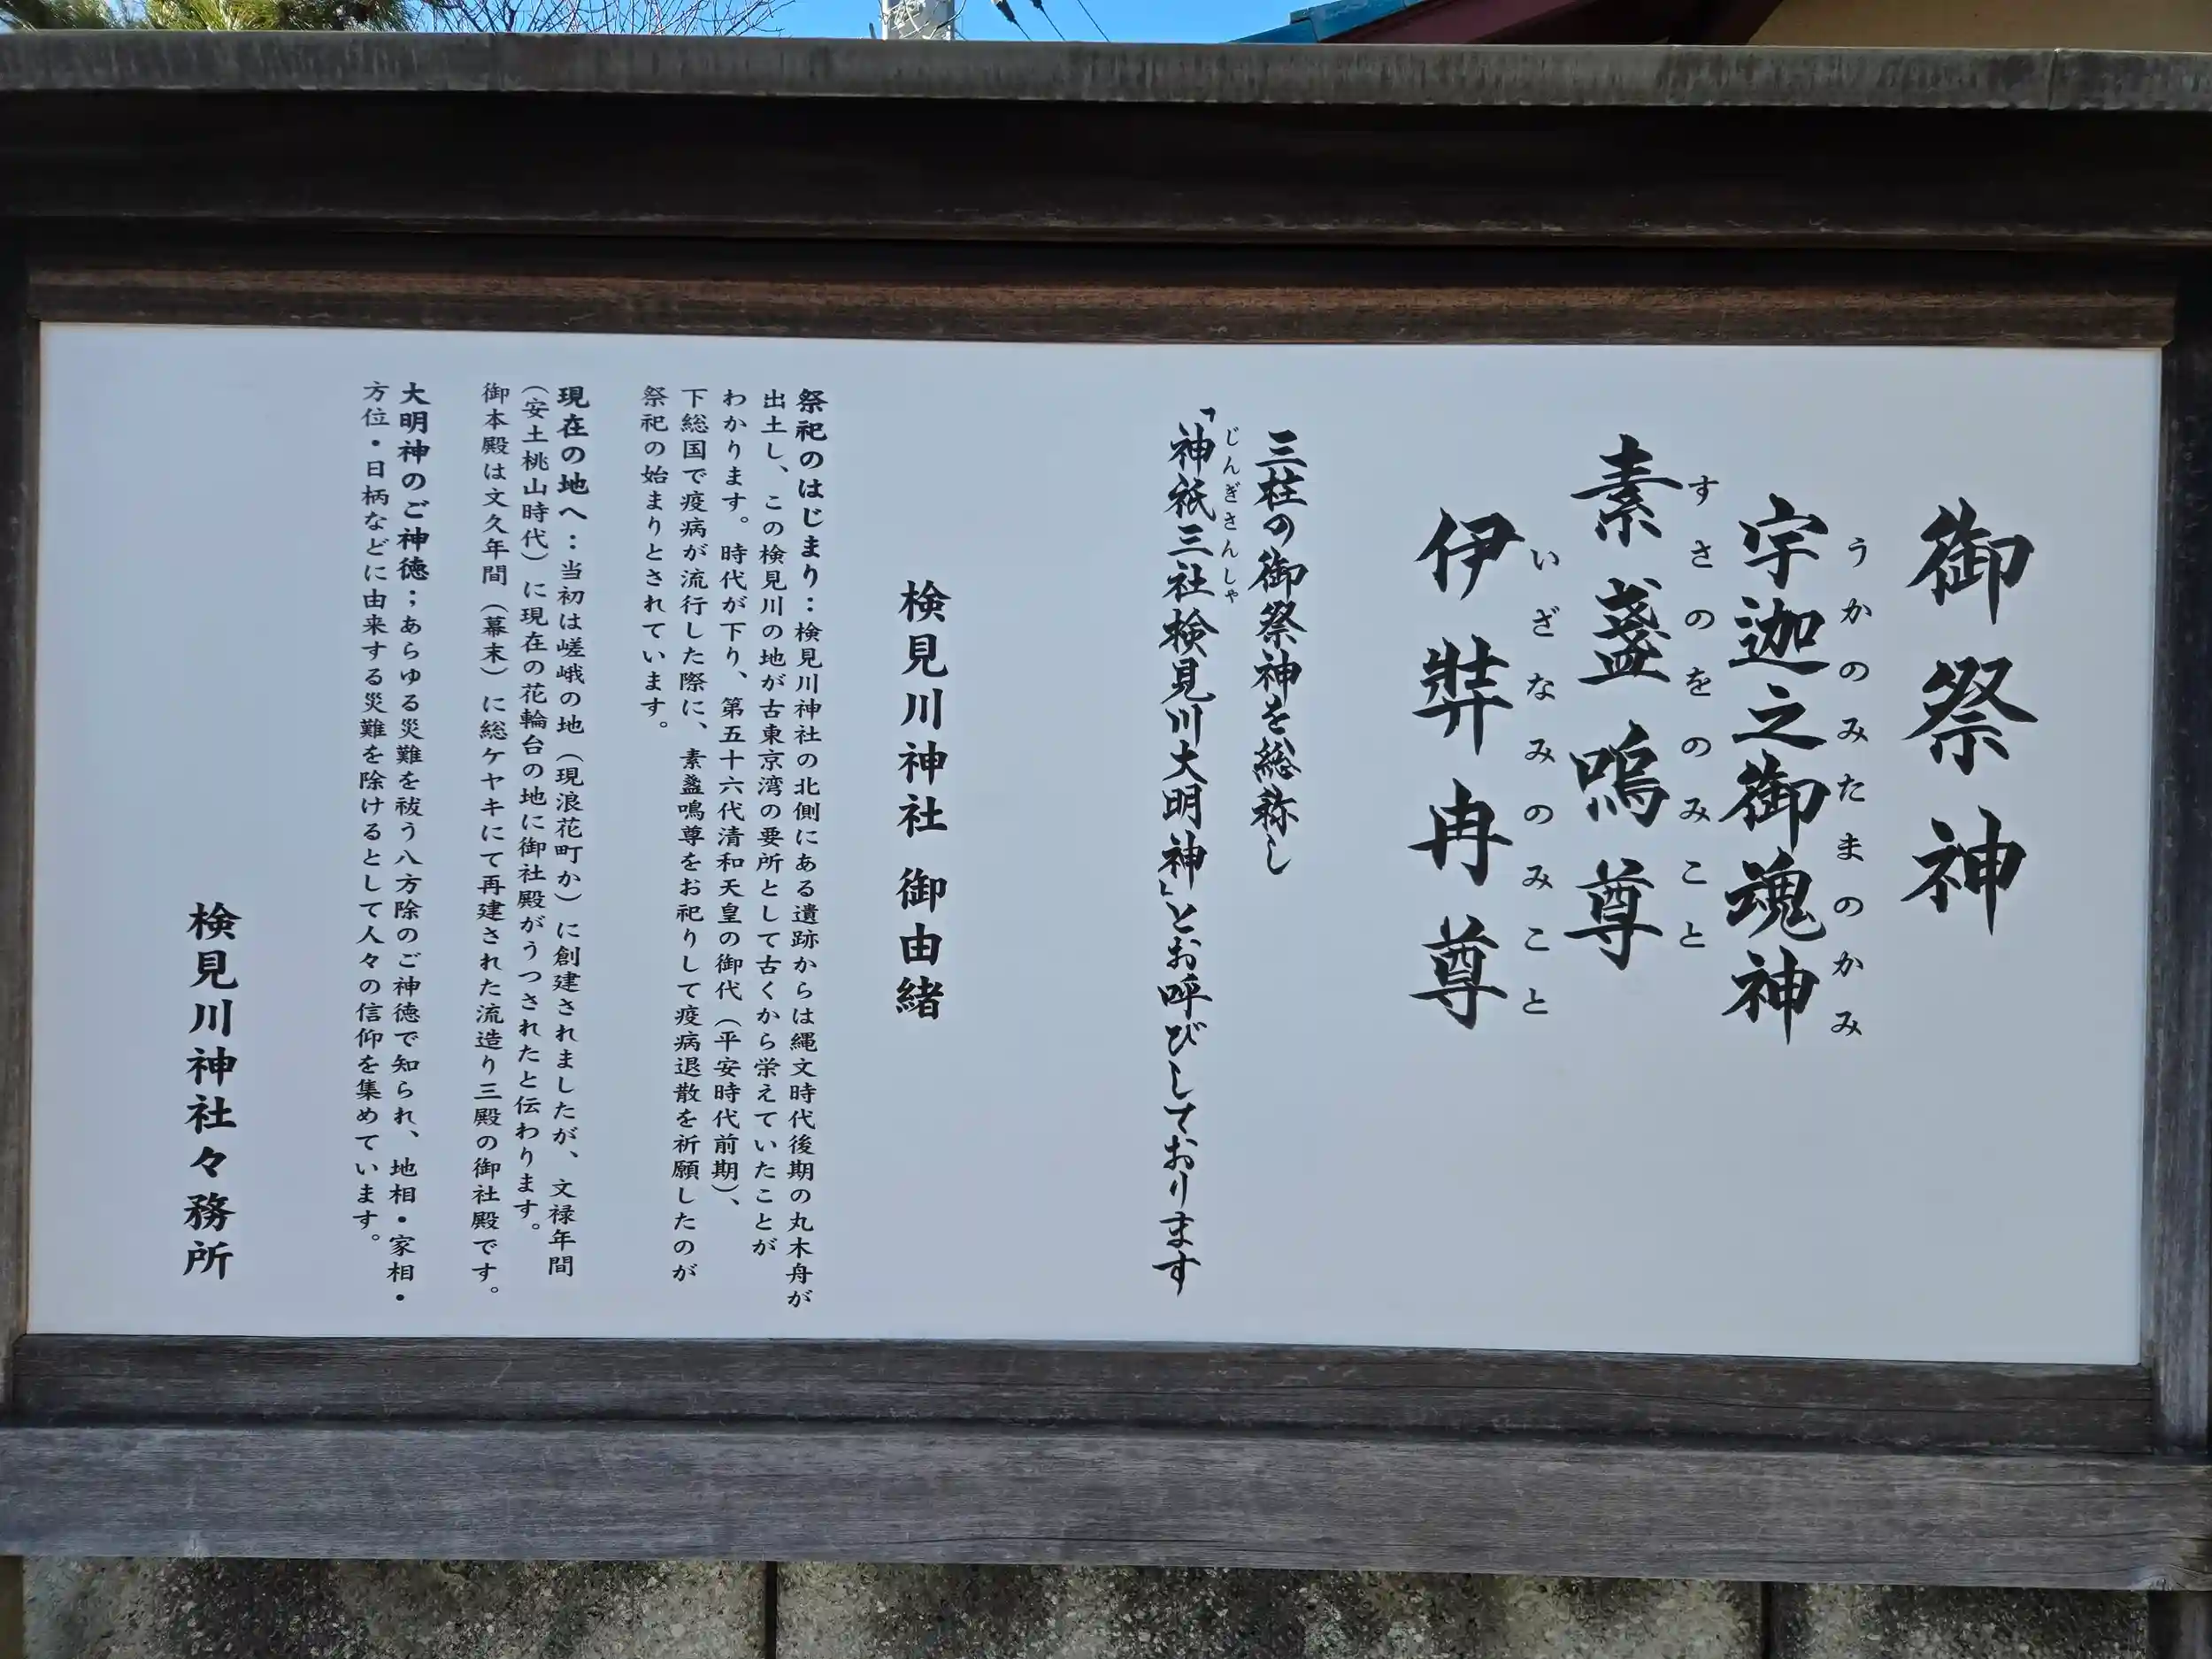 御祭神
宇迦之御魂神
うかのみたまのかみ
素盞嗚尊
すさのをのみこと
伊弉冉尊
いざなみのみこと
三柱の御祭神を総称し
「神祇三社検見川大明神」とお呼びしております
じんぎさんしゃ
検見川神社 御由緒
祭祀のはじまり：検見川神社の北側にある遺跡からは縄文時代後期の丸木舟が
出土し、この検見川の地が古東京湾の要所として古くから栄えていたことが
わかります。時代が下り、第五十六代清和天皇の御代（平安時代前期）、
下総国で疫病が流行した際に、素盞鳴尊をお祀りして疫病退散を祈願したのが
祭祀の始まりとされています。
現在の地へ：当初は嵯峨の地（現浪花町か）に創建されましたが、文禄年間
（安土桃山時代）に現在の花輪台の地に御社殿がうつされたと伝わります。
御本殿は文久年間（幕末）に総ケヤキにて再建された流造り三殿の御社殿です。
大明神のご神徳；あらゆる災難を祓う八方除のご神徳で知られ、地相・家相・
方位・日柄などに由来する災難を除けるとして人々の信仰を集めています。
検見川神社々務所